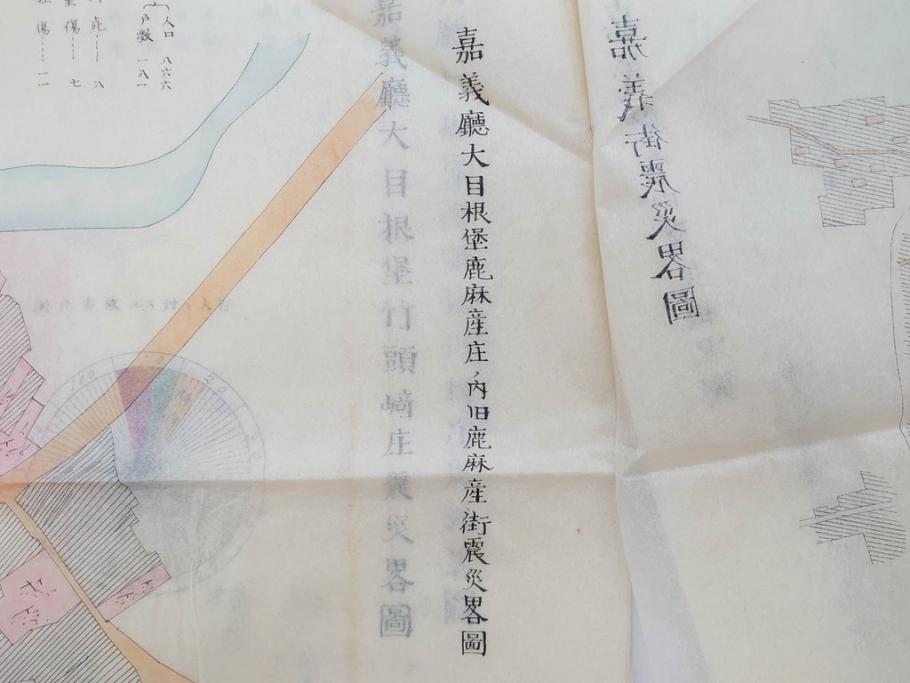 嘉義街震災畧圖
嘉義廳大目根堡鹿麻産庄ノ内旧鹿麻産街震災畧圖
嘉義廳大目根堡竹頭崎庄震災畧圖
人口 八六六
戸数 一八一
死 八
傷 七
傷 一一